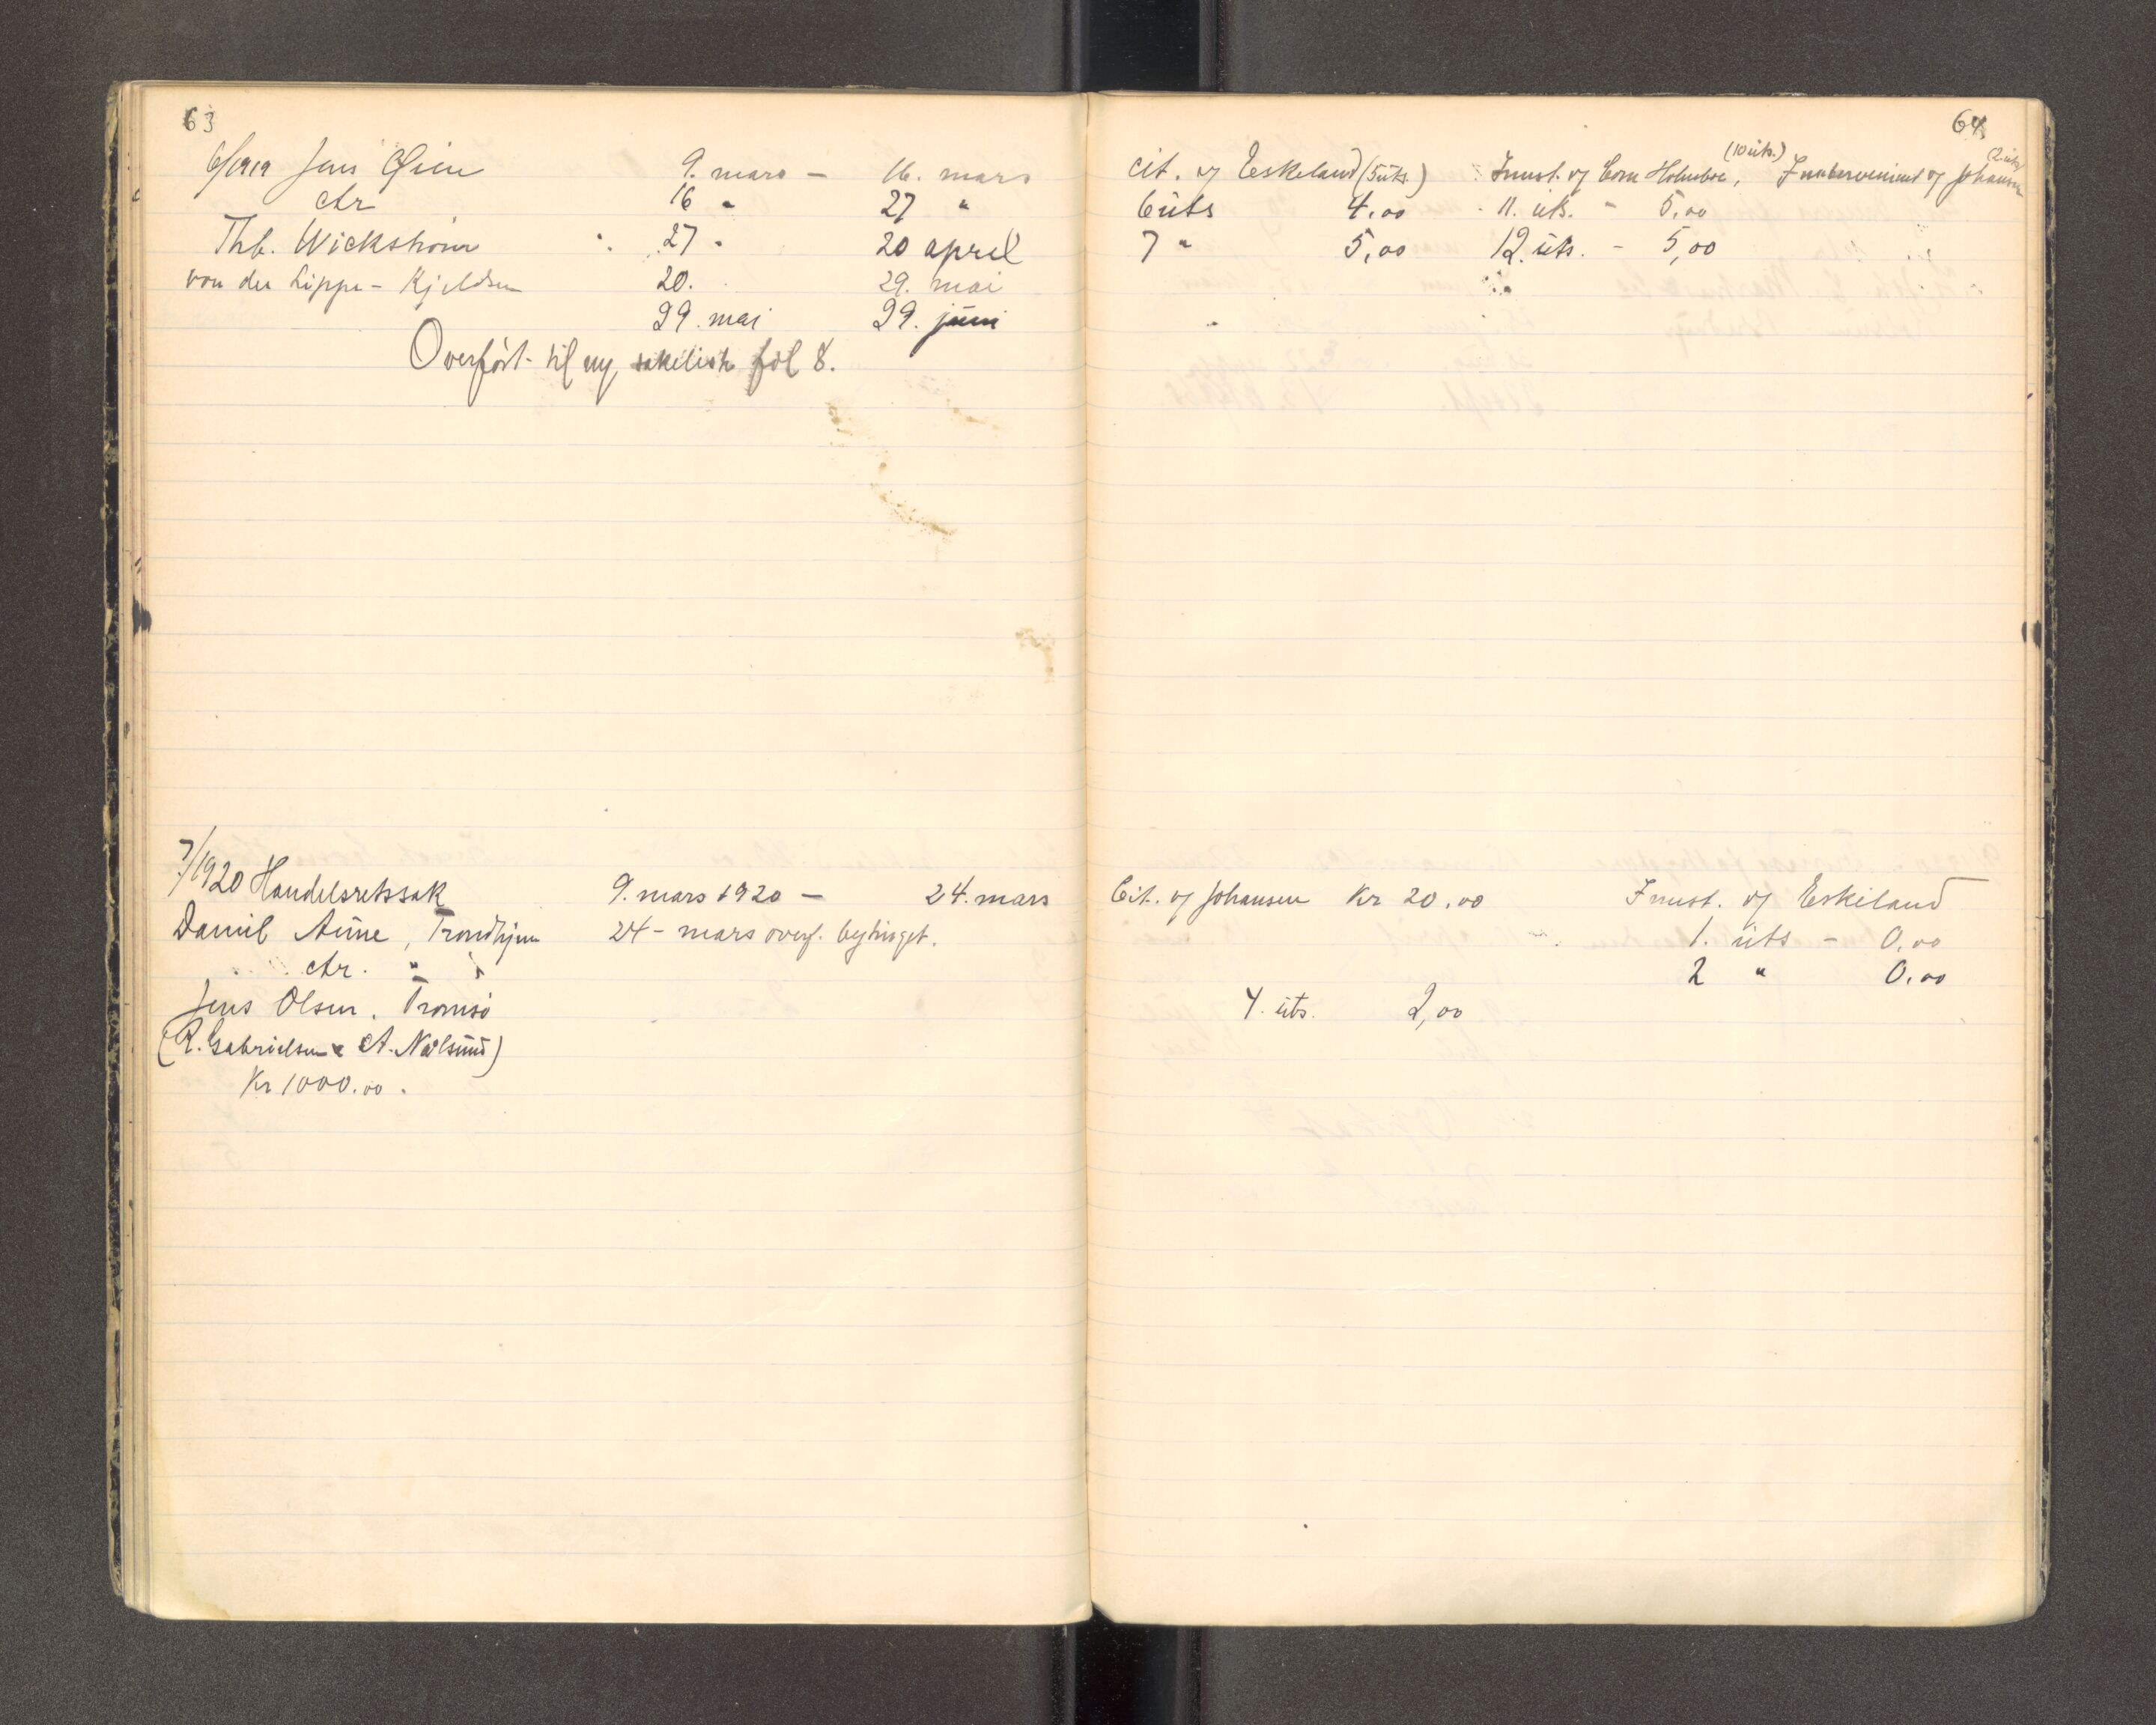 63
6/1919 Jens Øien 9. mars — 16. mars
ctr 16 " 27 "
Thb. Wickstrøm 27 " 20 april
von der Lippe - Kjeldsen 20. 29. mai
29. mai 29. juni
Overført til ny sakliste fol 8.
7/1920 Handelsretssak 9. mars 1920 — 24. mars
Daniel Aune, Trondhjem 24 - mars overf. bytinget.
ctr. "
Jens Olsen, Tromsø
(R. Gabrielsen & A. Nilsund)
Kr 1000.00.
64
(10 üts.) (2. üts
Cit. v/ Eskeland (5 üts.) Innst. v/ Corn Holmboe, Intervenient v/ Johansen
6 üts 4,00 11. üts. - 5,00
7 " 5,00 12. üts. - 5,00
Cit. v/ Johansen Kr 20,00 Innst. v/ Eskeland
1. üts - 0,00
2 " 0,00
4. üts. 2,00